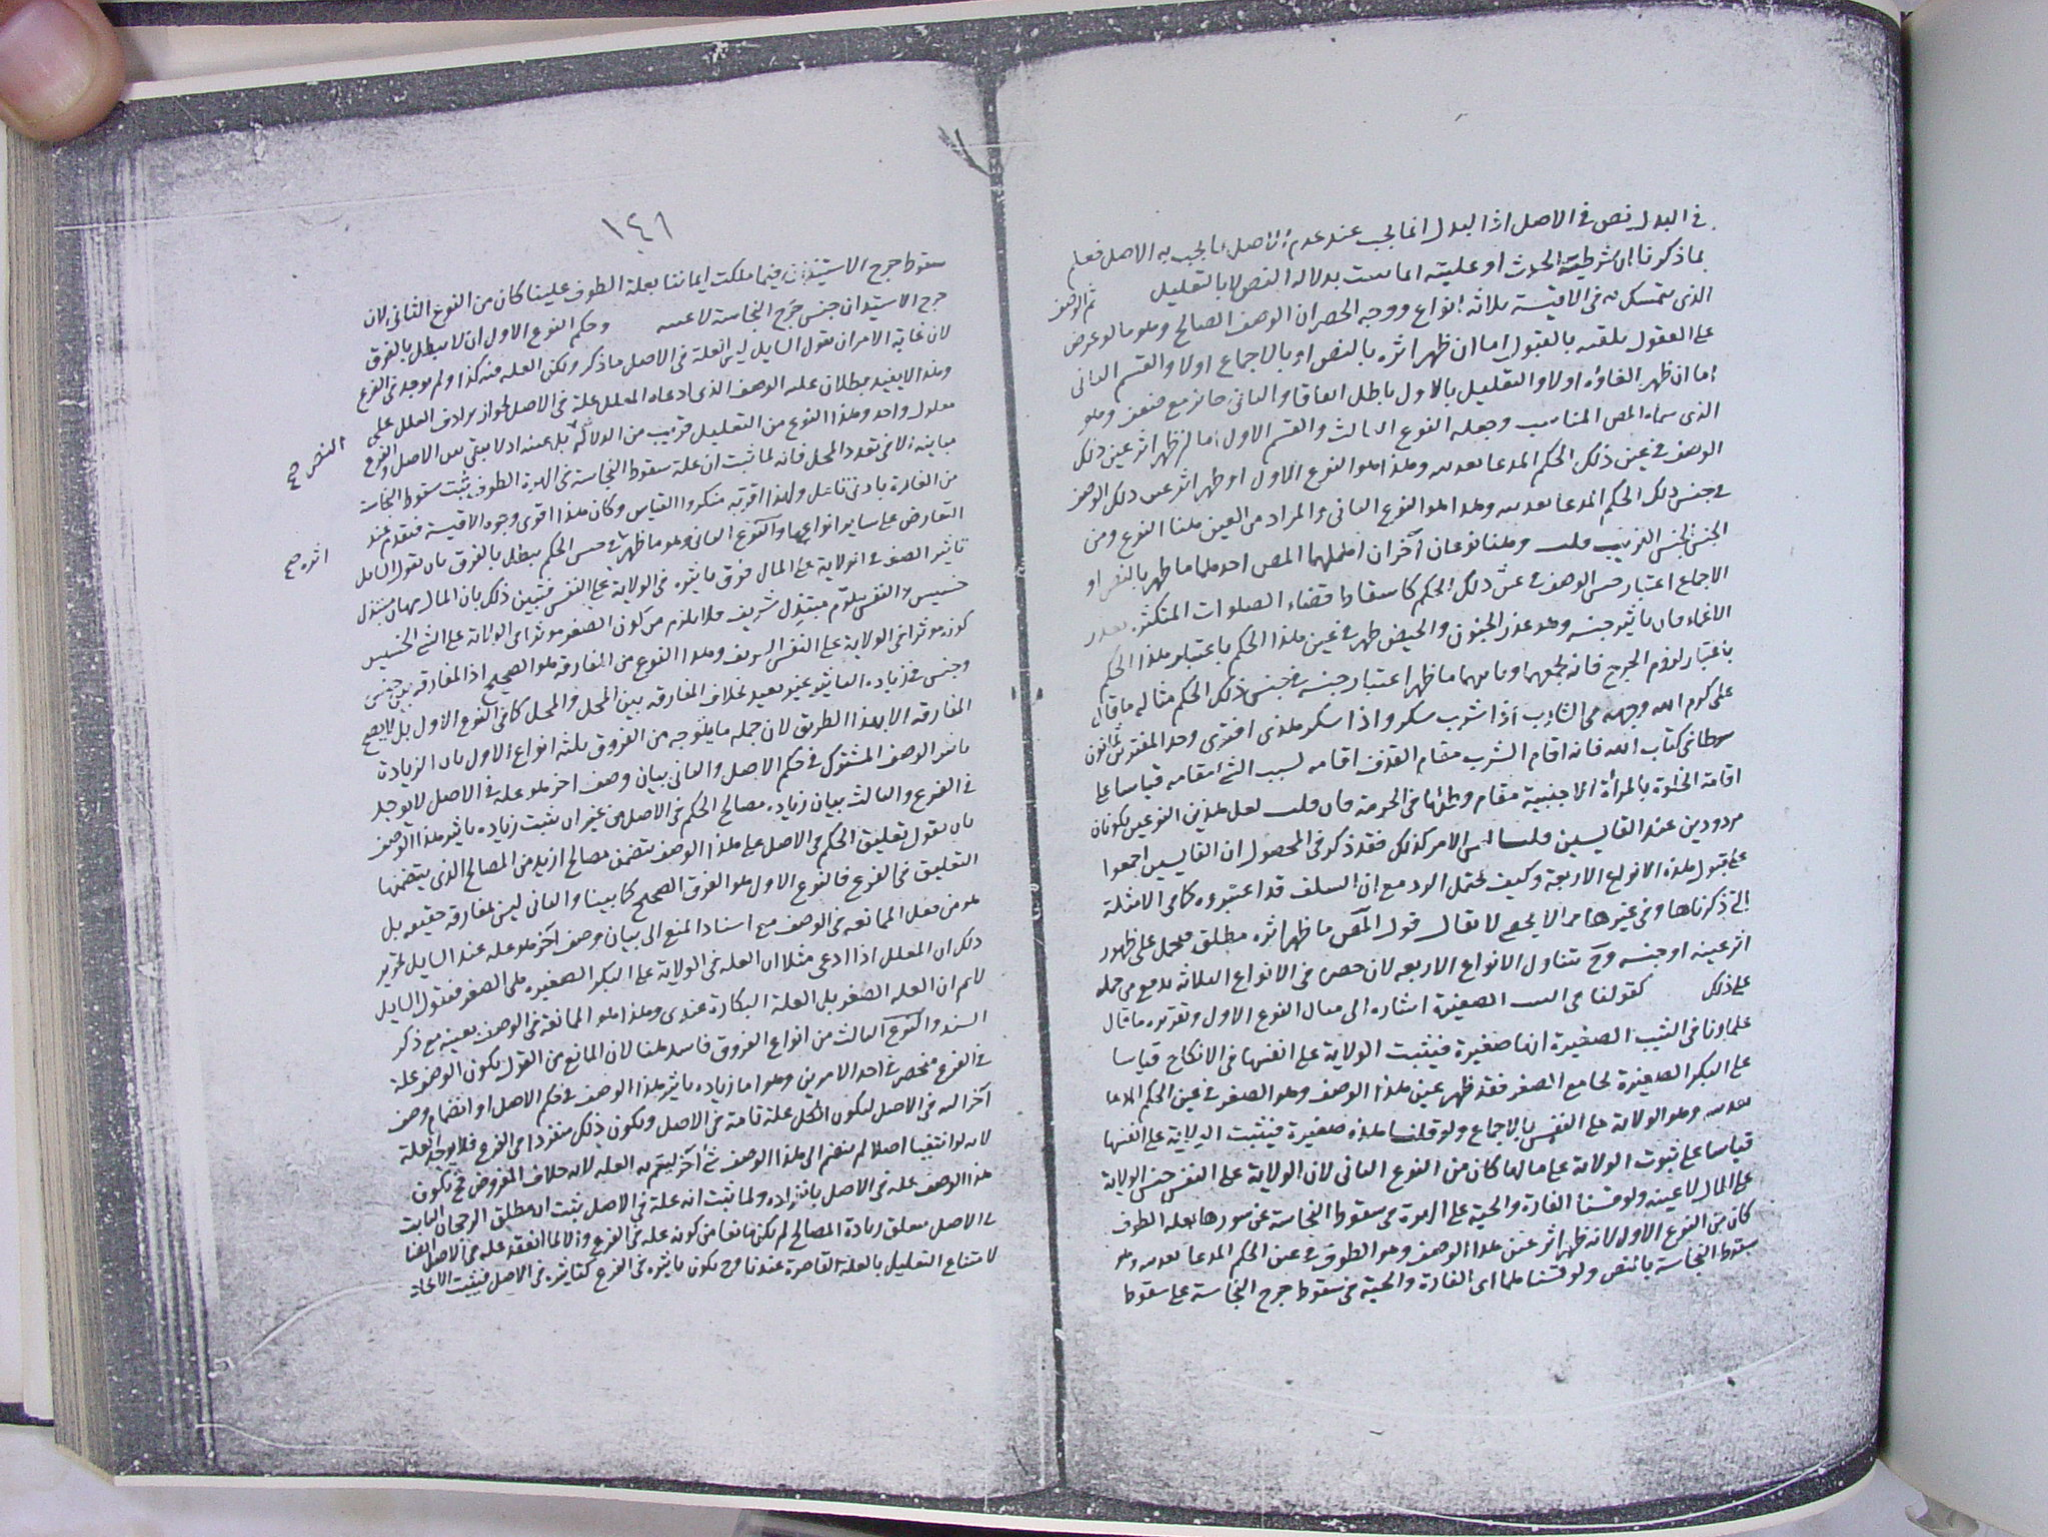 في البدل نص في الاصل اذ البدل انما يجب عند عدم الاصل بما يجب به الاصل فعلم
بما ذكرنا ان شرطية الحدث او عليته انما ثبتت بدلالة النص لا بالتعليل ثم الوصف
الذي يتمسك به في الاقيسة ثلاثة انواع ووجه الحصر ان الوصف الصالح وهو ما لو عرض
على العقول تلقته بالقبول اما ان ظهر اثره بالنص او بالاجماع اولا والقسم الثاني
اما ان ظهر الغاؤه اولا والتعليل بالاول باطل اتفاقا والثاني جائز مع ضعف وهو
الذي سماه المص المناسب وجعله النوع الثالث والقسم الاول اما ان ظهر اثر عين ذلك
الوصف في عين ذلك الحكم المدعا تعديته وهذا هو النوع الاول او ظهر اثر عين ذلك الوصف
في جنس ذلك الحكم المدعا تعديته وهذا هو النوع الثاني والمراد من العين هنا النوع ومن
الجنس الجنس القريب قلت وهنا نوعان آخران اهملهما المص احدهما ما ظهر بالنص او
الاجماع اعتبار جنس الوصف في عين ذلك الحكم كاسقاط قضاء الصلوات المتكثرة بعذر
الاغماء فان تأثير جنسه وهو عذر الجنون والحيض ظهر في عين هذا الحكم باعتبار هذا الحكم
باعتبار لزوم الحرج فانه يجمعهما وثانيهما ما ظهر اعتبار جنسه في جنس ذلك الحكم مثاله ما قال
علي كرم الله وجهه في الشارب اذا شرب سكر واذا سكر هذى افترى وحد المفترين ثمانون
سوطا في كتاب الله فانه اقام الشرب مقام القذف اقامة لسبب الشئ مقامه قياسا على
اقامة الخلوة بالمرأة الاجنبية مقام وطئها في الحرمة فان قلت لعل هذين النوعين يكونان
مردودين عند القايسين قلت ليس الامر كذلك فقد ذكر في المحصول ان القايسين اجمعوا
على قبول هذه الانواع الاربعة وكيف يحتمل الرد مع ان السلف قد اعتبروه كما في الامثلة
التي ذكرناها وفي غيرها مما لا يحصى لا يقال قول المص ما ظهر اثره مطلق فيحمل على ظهور
اثر عينه او جنسه وح يتناول الانواع الاربعة لان حصره في الانواع الثلاثة يدفع من حمله
على ذلك كقولنا في الثيب الصغيرة اشارة الى مثال النوع الاول وتقريره ما قال
علماونا في الثيب الصغيرة انها صغيرة فيثبت الولاية على نفسها في الانكاح قياسا
على البكر الصغيرة بجامع الصغر فقد ظهر عين هذا الوصف وهو الصغر في عين الحكم المدعا
تعديته وهو الولاية على النفس بالاجماع ولو قلنا هذه صغيرة فيثبت الولاية على نفسها
قياسا على ثبوت الولاية على مالها كان من النوع الثاني لان الولاية على النفس جنس الولاية
على المال لا عينه ولو قسنا الفارة والحية على الهرة في سقوط النجاسة عن سورها بعلة الطوف
كان من النوع الاول لانه ظهر اثر عين هذا الوصف وهو الطوف في عين الحكم المدعا تعديته وهو
سقوط النجاسة بالنص ولو قسناهما اي الفارة والحية في سقوط حرج النجاسة على سقوط
١٤٦
سقوط حرج الاستيذان فيما ملكت ايماننا بعلة الطوف علينا كان من النوع الثاني لان
حرج الاستيذان جنس حرج النجاسة لا عينه وحكم النوع الاول ان لا يبطل بالفرق
لان غاية الامر ان يقول السايل ليس العلة في الاصل ما ذكر ولكن العلة فيه كذا ولم يوجد في الفرع
وهذا لا يفيد بطلان علية الوصف الذي ادعاه المعلل علة في الاصل لجواز ترادف العلل على
معلول واحد وهذا النوع من التعليل قريب من الدلالة بل عينه اذ لا يبقى بين الاصل والفرع
النص صح
مباينة الا في تعدد المحل فانه لما ثبت ان علة سقوط النجاسة في الهرة الطوف يثبت سقوط النجاسة
من الفارة بادنى تامل ولهذا اقر به منكروا القياس وكان هذا اقوى وجوه الاقيسة فيقدم عند
التعارض على ساير انواعها والنوع الثاني وهو ما ظهر في جنس الحكم يبطل بالفرق بان يقول السايل
اثره صح
تاثير الصغر في الولاية على المال فوق تاثيره في الولاية على النفس فيتبين ذلك بان المال مهان مبتذل
خسيس والنفس مبتذل شريف فلا يلزم من كون الصغر موثرا في الولاية على الشئ الخسيس
كونه موثرا في الولاية على النفس الشريف وهذا النوع من المفارقة هو الصحيح اذ المفارقة بين جنس
وجنس في زيادة التاثير غير بعيد بخلاف المفارقة بين المحل والمحل كما في النوع الاول بل لا يصح
المفارقة الا بهذا الطريق لان جملة ما يتوجه من الفروق ثلثة انواع الاول بيان الزيادة
تاثير الوصف المشترك في حكم الاصل والثاني بيان وصف اخر هو علة في الاصل لا يوجد
في الفرع والثالث بيان زيادة مصالح الحكم في الاصل من غير ان يثبت زيادة تاثير هذا الوصف
بان يقول تعليق الحكم في الاصل على هذا الوصف يتضمن مصالح ازيد من المصالح الذي يتضمنها
التعليق في الفرع فالنوع الاول هو الفرق الصحيح كما بينا والثاني ليس بمفارقة حقيقة بل
هو من قبيل الممانعة في الوصف مع اسناد المنع الى بيان وصف آخر هو علة عند السايل تحرير
ذلك ان المعلل اذا ادعى مثلا ان العلة في الولاية على البكر الصغيرة هي الصغر فيقول السايل
لا نم ان العلة الصغر بل العلة البكارة عندي وهذا هو الممانعة في الوصف بعينه مع ذكر
السند والنوع الثالث من انواع الفروق فاسد هنا لان المانع من القول بكون الوصف علة
في الفرع منحصر في احد الامرين وهو اما زيادة تاثير هذا الوصف في حكم الاصل او انضمام وصف
آخر اليه في الاصل ليكون الكل علة تامة في الاصل ويكون ذلك منفردا في الفرع فلا يوجد العلة
لانه لو انتفيا اصلا لم ينضم الى هذا الوصف شئ آخر ليتم به العلة لانه خلاف المفروض فح يكون
هذا الوصف علة في الاصل بانفراده ولما ثبت انه علة في الاصل يثبت ان مطلق الرجحان الثابت
في الاصل متعلق زيادة المصالح لم يكن مانعا من كونه علة في الفرع والا لما انعقد علة في الاصل ايضا
لامتناع التعليل بالعلة القاصرة عندنا وح يكون تاثيره في الفرع كتاثيره في الاصل فيثبت الاتحاد